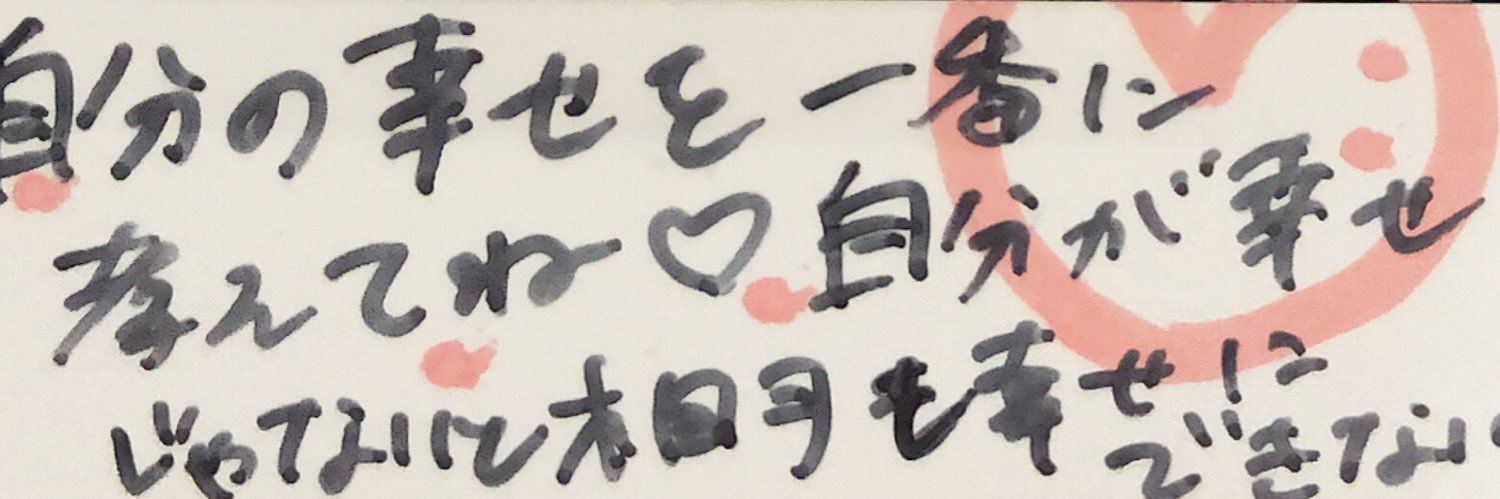 自分の幸せを一番に
考えてね♡自分が幸せ
じゃないと相手も幸せに
できない